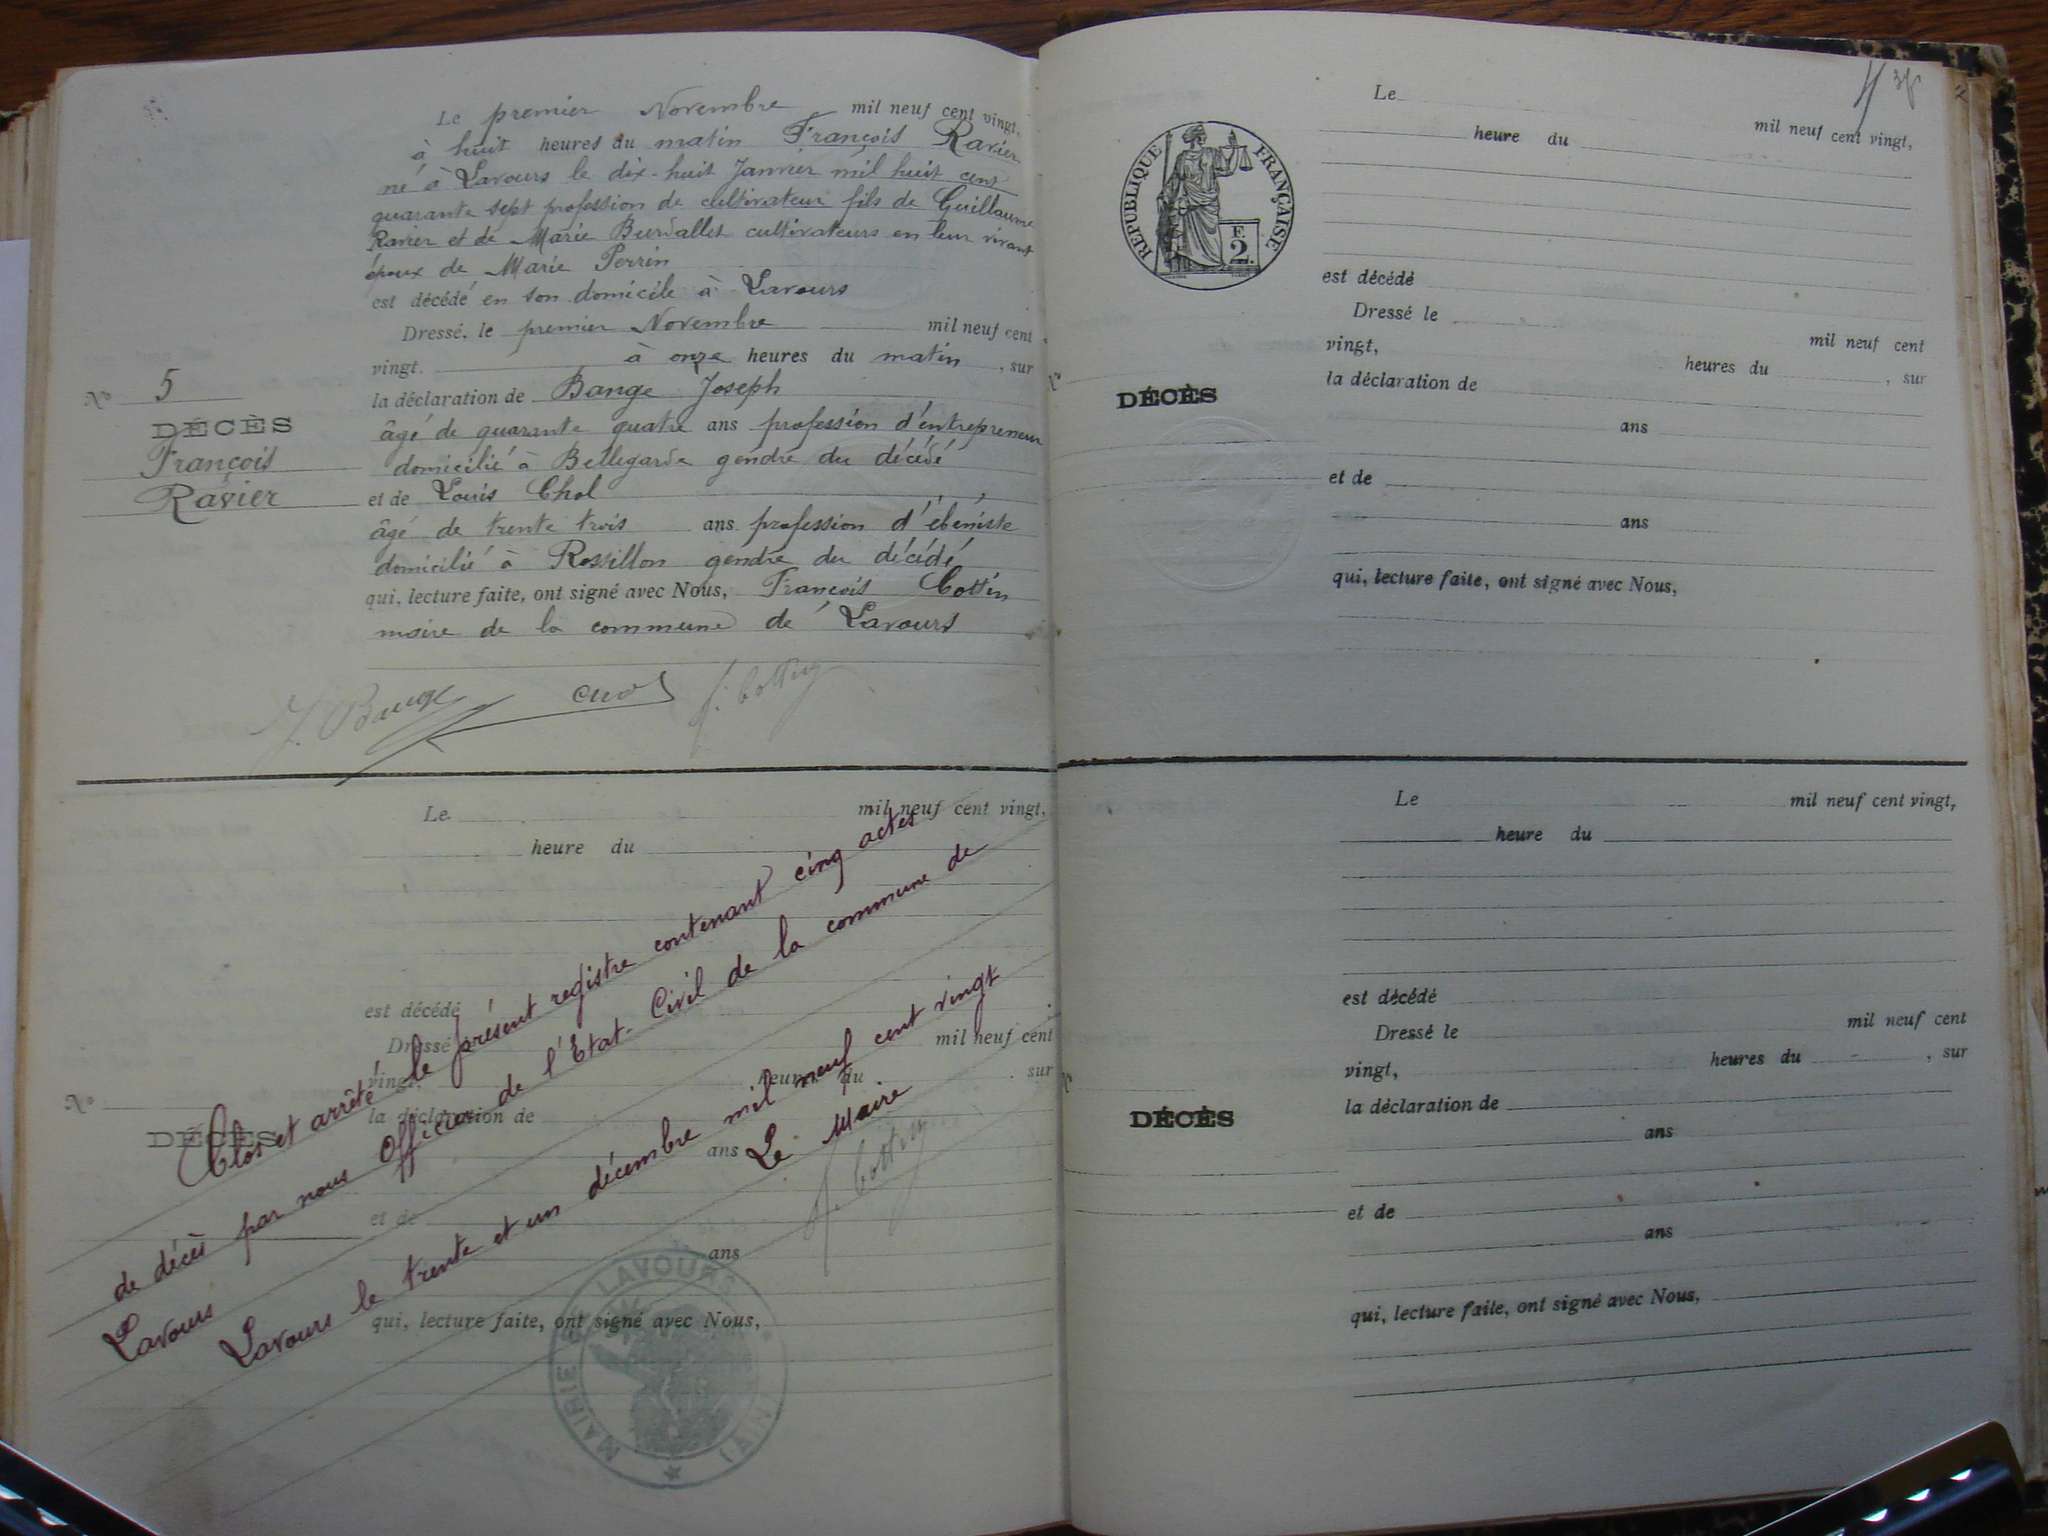 Le premier Novembre mil neuf cent vingt,
à huit heures du matin François Ravier
né à Lavours le dix-huit Janvier mil huit cent
quarante sept profession de cultivateur fils de Guillaume
Ravier et de Marie Burdallet cultivateurs en leur vivant
époux de Marie Perrin
est décédé en son domicile à Lavours
Dressé, le premier Novembre mil neuf cent
vingt. à onze heures du matin, sur
la déclaration de Bange Joseph
âgé de quarante quatre ans profession d'entrepreneur
domicilié à Bellegarde gendre du décédé
et de Louis Chol
âgé de trente trois ans profession d'ébéniste
domicilié à Rossillon gendre du décédé
qui, lecture faite, ont signé avec Nous, François Cottin
maire de la commune de Lavours
No 5
DÉCÈS
François
Ravier
J. Bange
f. Cottin
Le mil neuf cent vingt,
heure du
est décédé
Dressé mil neuf cent
vingt, heure du sur
la déclaration de
ans
et de
ans
qui, lecture faite, ont signé avec Nous,
No
DÉCÈS
Clos et arrêté le présent registre contenant cinq actes
de décès par nous Officier de l'Etat-Civil de la commune de
Lavours
Lavours le trente et un décembre mil neuf cent vingt
Le Maire
f. Cottin
MAIRIE DE LAVOURS
(AIN)
RÉPUBLIQUE FRANÇAISE
F.
2.
Le mil neuf cent vingt,
heure du
est décédé
Dressé le mil neuf cent
vingt, heures du , sur
la déclaration de
ans
et de
ans
qui, lecture faite, ont signé avec Nous,
DÉCÈS
Le mil neuf cent vingt,
heure du
est décédé
Dressé le mil neuf cent
vingt, heures du , sur
la déclaration de
ans
et de
ans
qui, lecture faite, ont signé avec Nous,
DÉCÈS